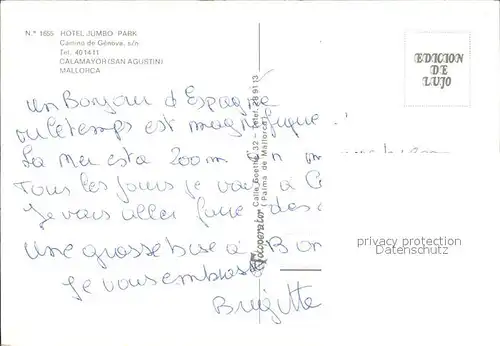 N.º 1655 HOTEL JUMBO PARK
Camino de Génova, s/n
Tel. 401411
CALAMAYOR (SAN AGUSTIN)
MALLORCA
EDICION
DE
LUJO
un Bonjour d'Espagne
ou le temps est magnifique !
La Mer est a 200m
Tous les jours je vais a
Je vais aller faire des
Une grosse bise a
Je vous embrasse
Brigitte
Fotoperator Calle Goethe 32 - Telef. 289113
(Palma de Mallorca)
privacy protection
Datenschutz